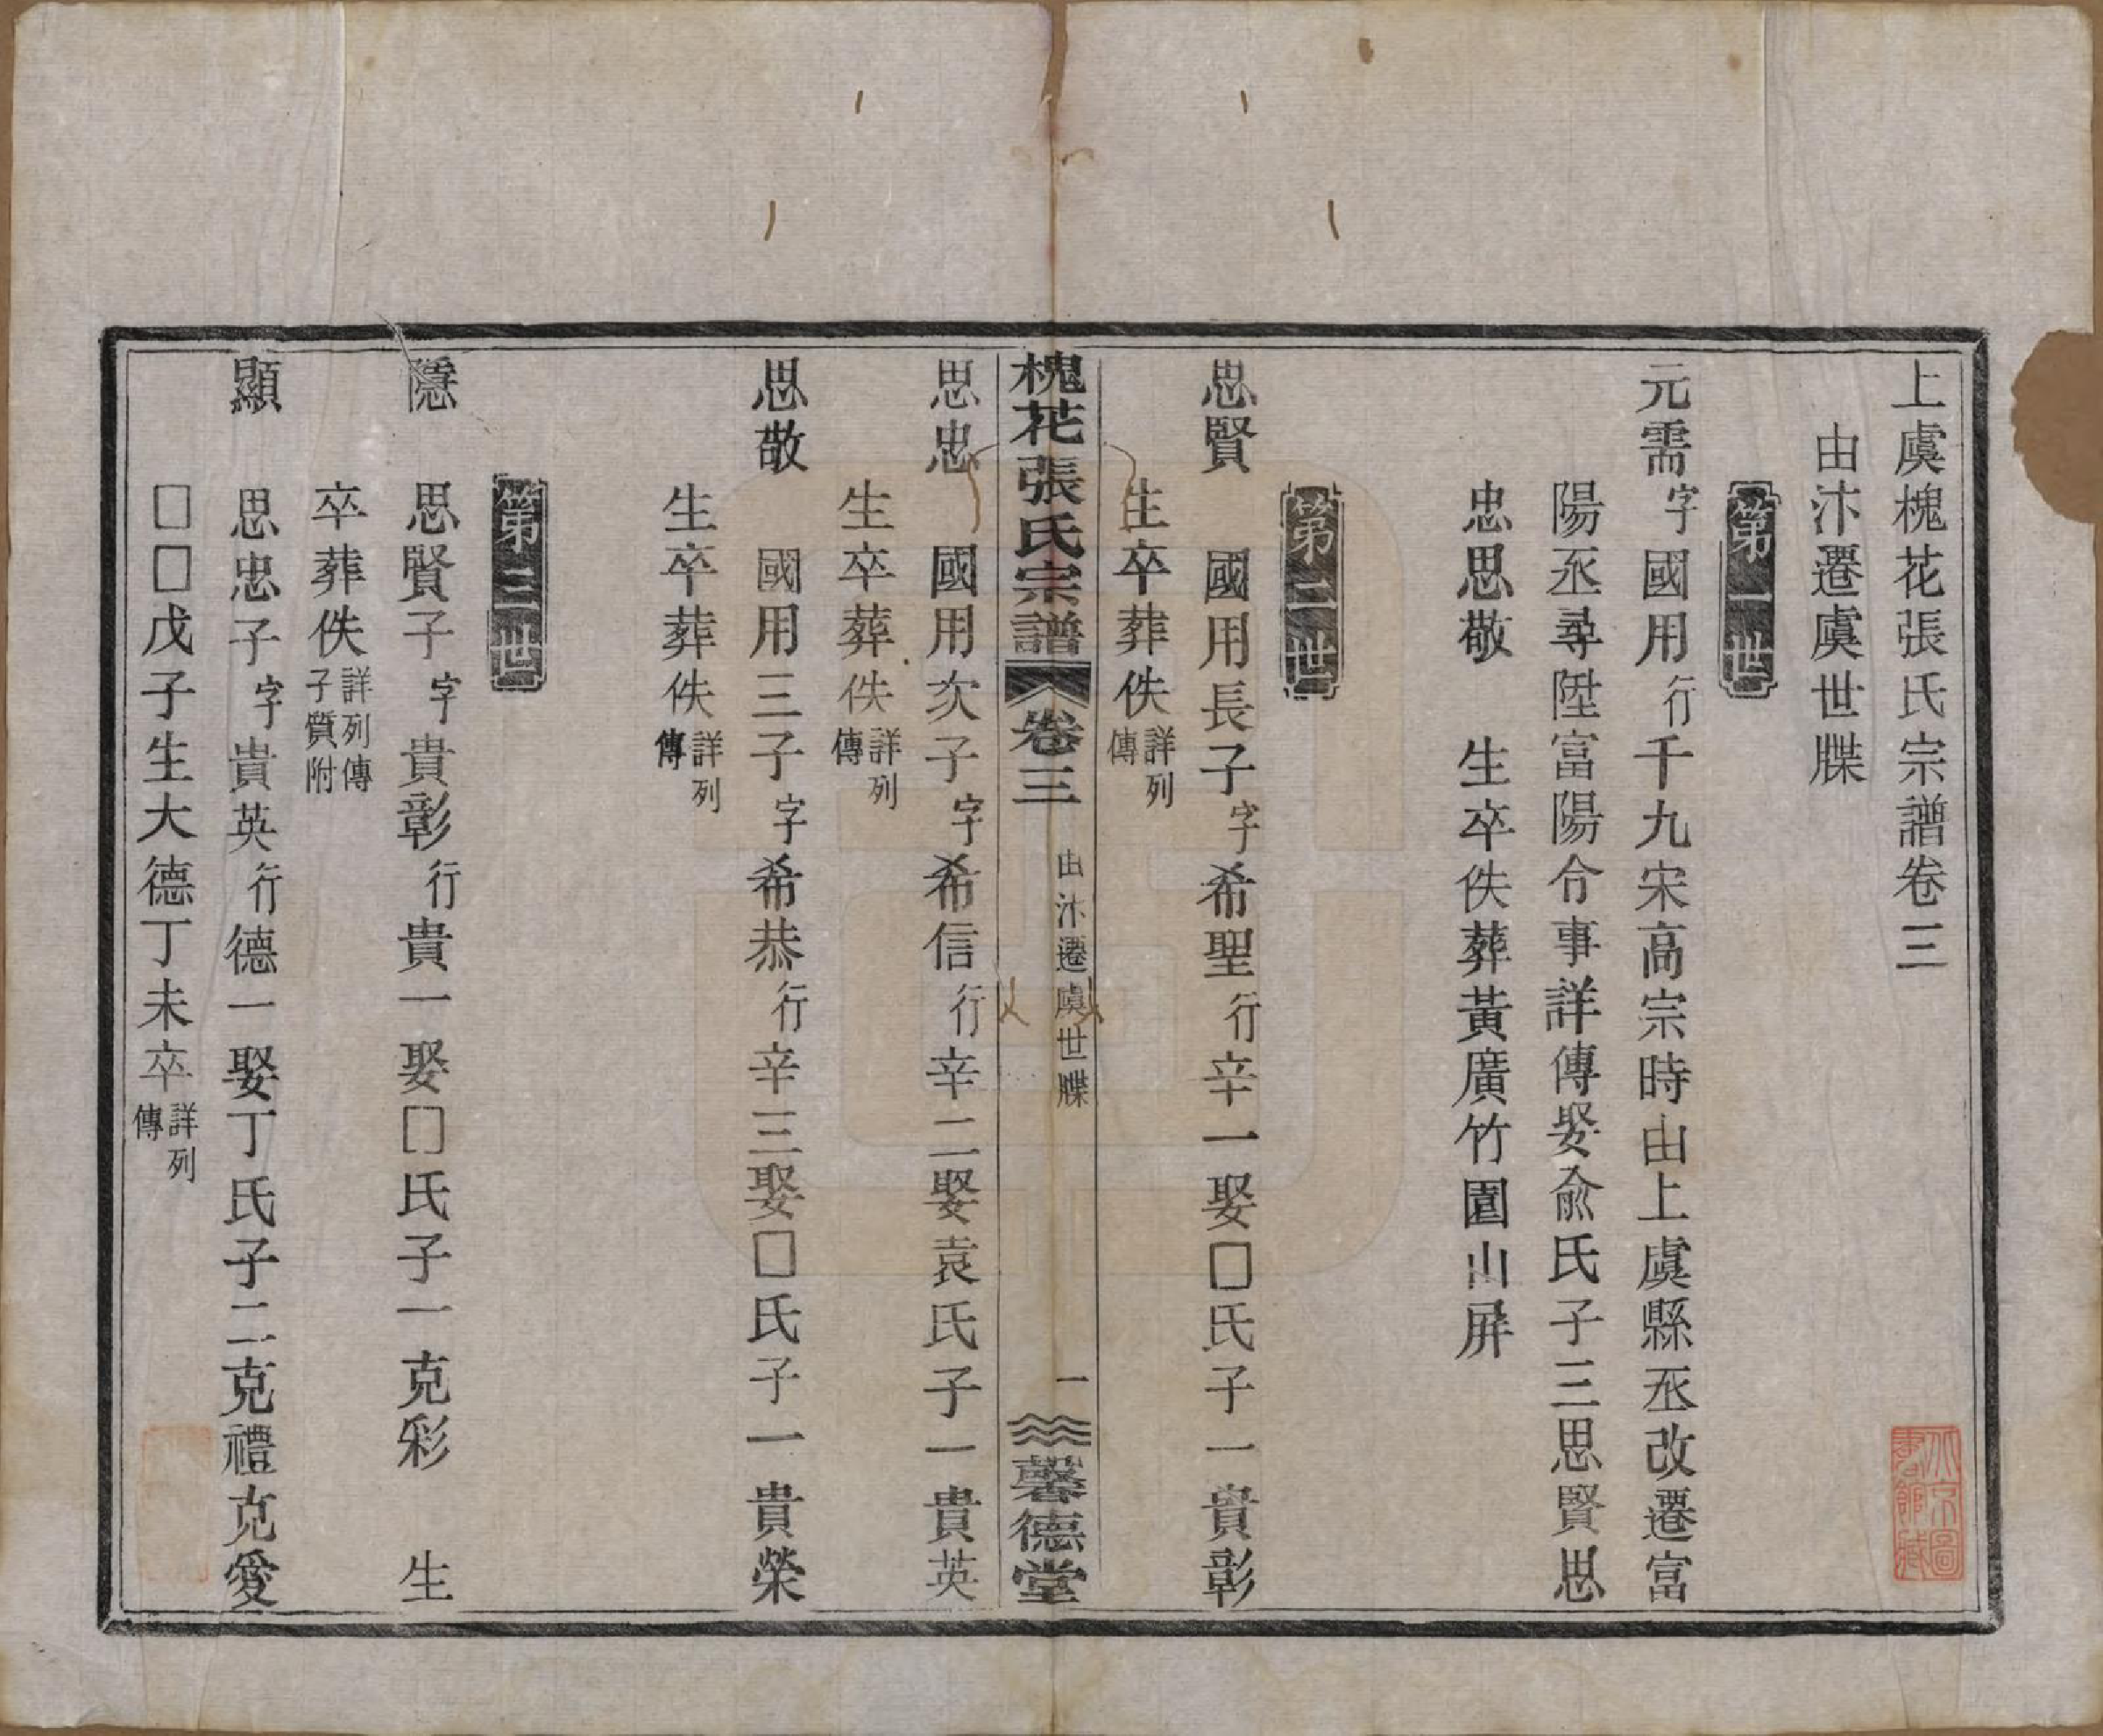 上虞槐花張氏宗譜卷三
由汴遷虞世牒
第一世
元需字國用行千九宋高宗時由上虞縣丞改遷富
陽丞尋陞富陽令事詳傳娶俞氏子三思賢思
忠思敬　生卒佚葬黃廣竹園山屏
第二世
思賢　國用長子字希聖行辛一娶□氏子一貴彰
生卒葬佚詳列傳
槐花張氏宗譜　卷三　由汴遷虞世牒　一　馨德堂
思忠　國用次子字希信行辛二娶袁氏子一貴英
生卒葬佚詳列傳
思敬　國用三子字希恭行辛三娶□氏子一貴榮
生卒葬佚詳列傳
第三世
隱　思賢子字貴彰行貴一娶□氏子一克彩　生
卒葬佚詳列傳子質附
顯　思忠子字貴英行德一娶丁氏子二克禮克愛
□□戊子生大德丁未卒詳列傳